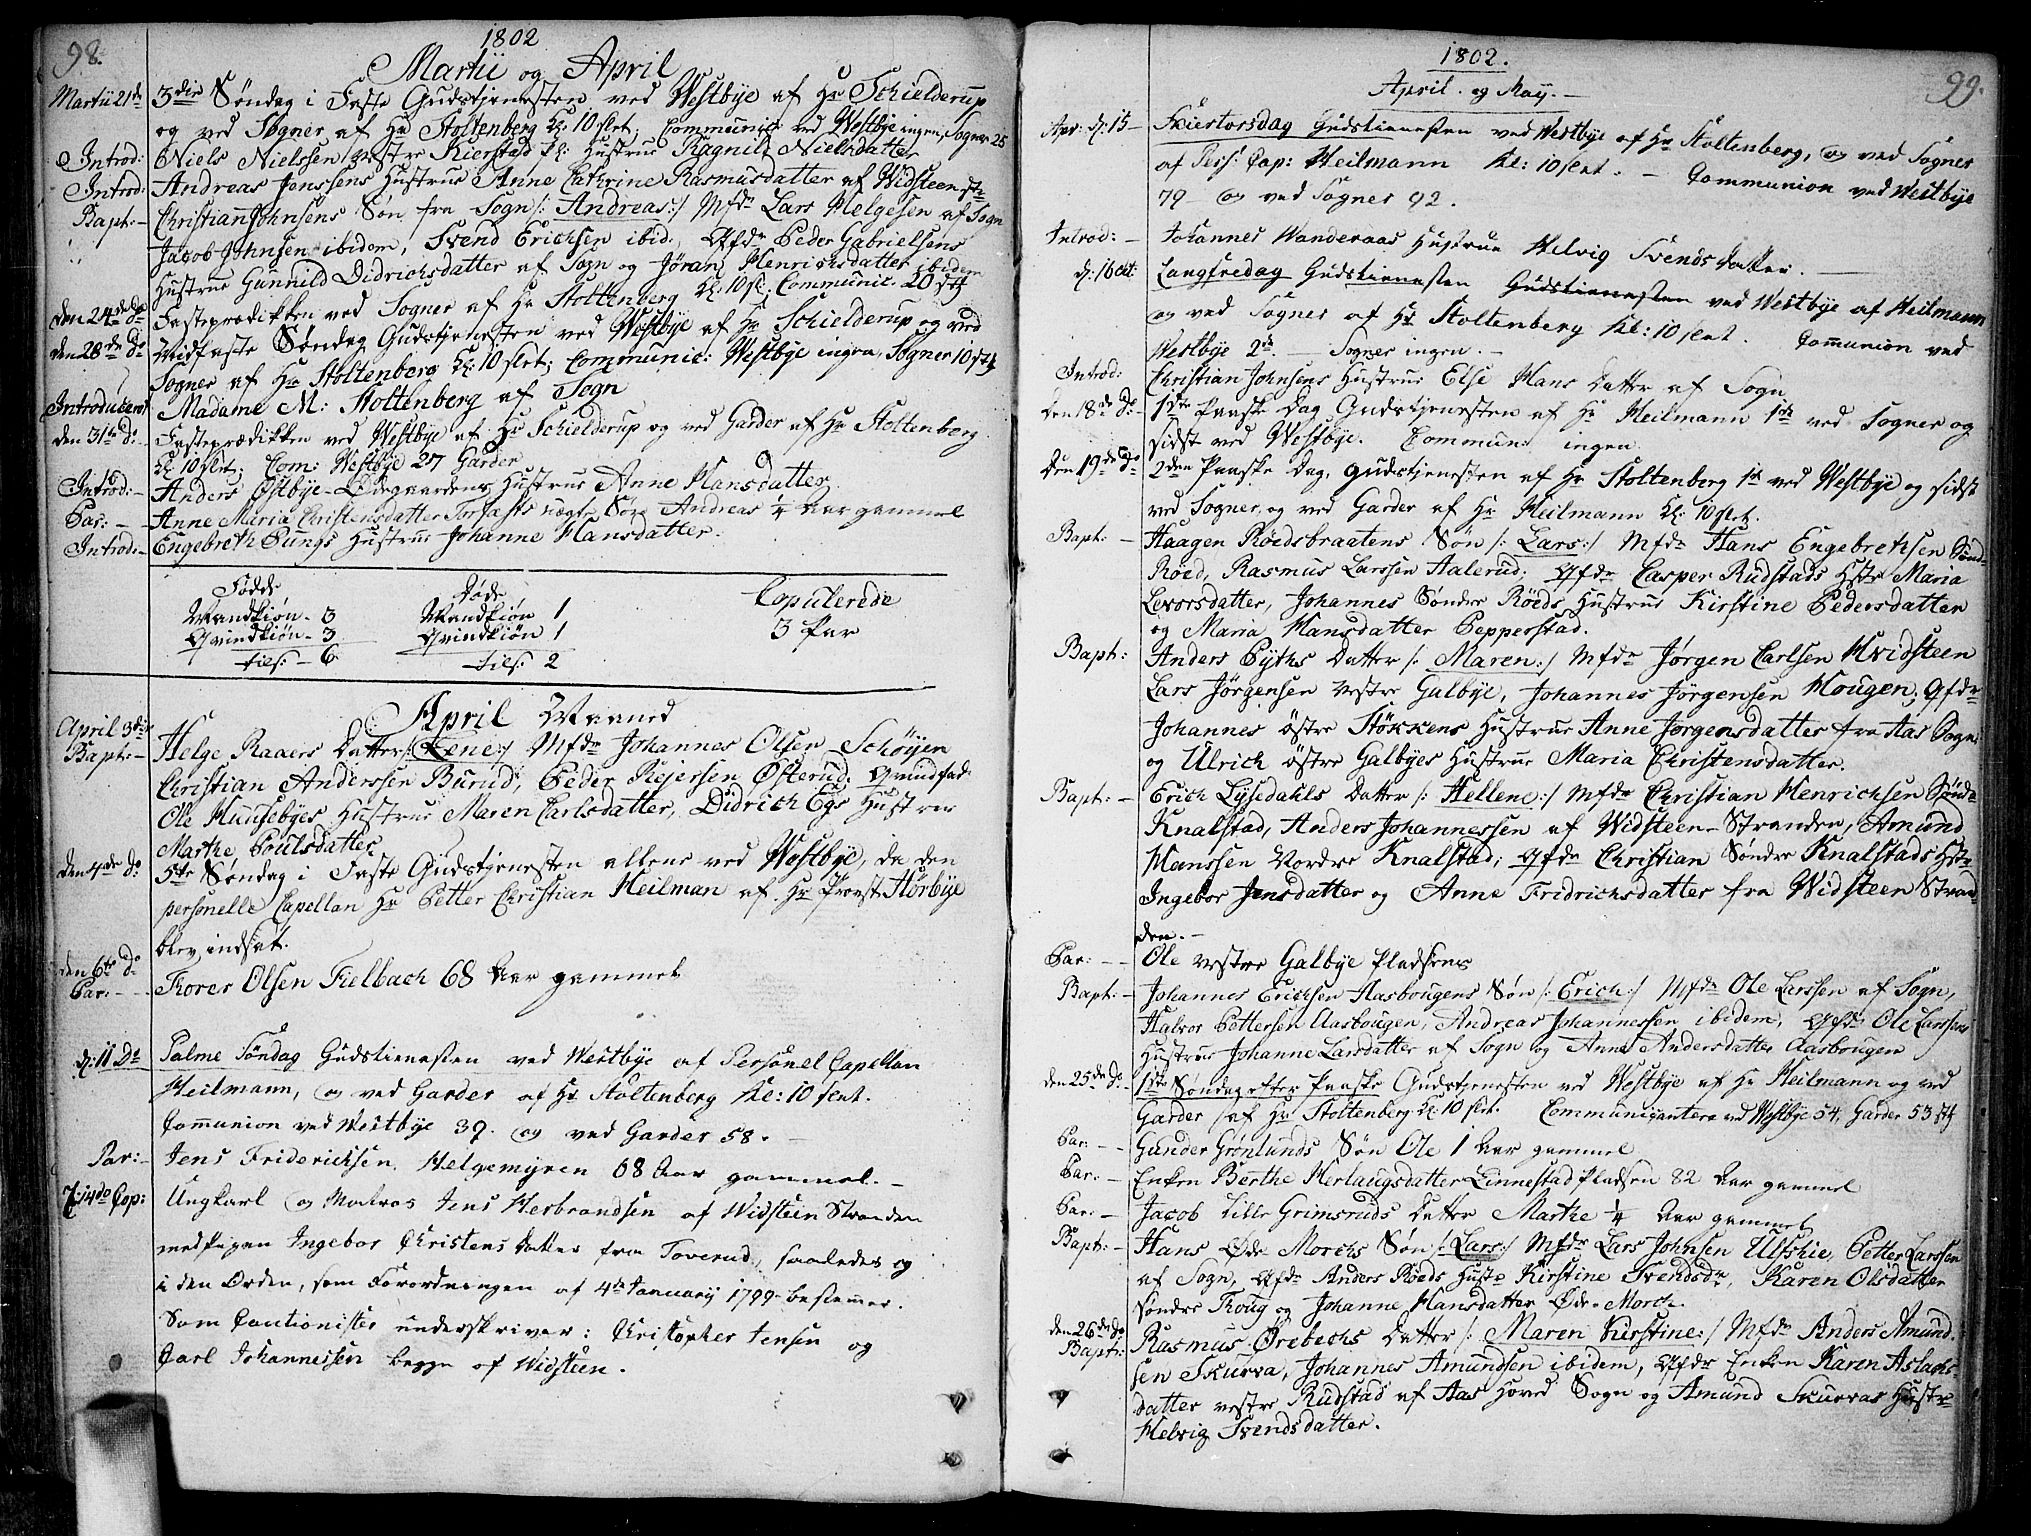 98.
1802
Martii og April
Martii 21de 3die Søndag i Faste Gudstjenesten ved Westbye af Hr Schielderup
og ved Sogner af Hr Stoltenberg Kl: 10 slet; Communic: ved Westbye ingen, Sogner 25
Introd: Niels Nielssen Vestre Kierstad Pl: Hustrue Ragnild Nielsdatter
Introd: Andreas Jenssens Hustrue Anne Cathrine Rasmusdatter af Widsteen
Bapt: Christian Johnsens Søn fra Sogn /: Andreas :/ Mfdr Lars Helgesen af Sogn
Jacob Johnsen ibidem, Svend Erichsen ibid:, Qfdr Peder Gabrielsens
Hustrue Gunnild Didrichsdatter af Sogn og Jøran Henrichsdatter ibidem
den 24de do Fasteprædikken ved Sogner af Hr Stoltenberg Kl: 10 sl: Communic. 20 st
den 28de do Midfaste Søndag Gudstjenesten ved Westbye af Hr Schielderup og ved
Sogner af Hr Stoltenberg Kl: 10 slet; Communic: Westbye ingen, Sogner 10 st
Introduceret Madame M: Stoltenberg af Sogn
den 31te do Fasteprædikken ved Westbye af Hr Schielderup og ved Garder af Hr Stoltenberg
Kl: 10 slet; Com: Westbye 27 Garder
Introd: Anders Østbye-Ødegaardens Hustrue Anne Hansdatter
Par: Anne Maria Christensdatter uægte Søn Andreas 1/4 Aar gammel
Introd: Engebreth Pungs Hustrue Johanne Hansdatter.
Fødde Døde Copulerede
Mandkiøn - 3 Mandkiøn 1 3 Par
Qvindkiøn - 3 Qvindkiøn 1
tils: - 6 tils: 2
April Maaned
April 3die
Bapt: Helge Raaers Datter /: Lene :/ Mfdr Johannes Olsen Schøyen
Christian Anderssen Burud, Peder Rejersen Østerud. Qvindfad:
Ole Hunsebyes Hustrue Maren Carlsdatter, Didrich Egs Hustrue
Marthe Poulsdatter
den 4de do 5te Søndag i Faste Gudstjenesten allene ved Westbye, da den
personelle Capellan Hr Petter Christian Heilman af Hr Provst Hørbye
blev indsat.
den 6te do
Par: Torer Olsen Fielbach 68 Aar gammel
d: 11 Do Palme Søndag Gudstienesten ved Westbye af Personel Capellan
Heilmann, og ved Garder af Hr Stoltenberg Kl: 10 slet.
Communion ved Westbye 39. og ved Garder 58.
Par: Jens Friderichsen, Helgemyren 68 Aar gammel.
d: 14 do Cop: Ungkarl og Matros Jens Herbrandsen af Widsteen Stranden
med Pigen Ingebor Christens Datter fra Toverud, saaledes og
i den Orden, som Forordningen af 4de January 1799 bestemmer.
Som Cautionister underskriver: Christopher Jensen og
Carl Johannessen begge af Widsteen.
1802.
99.
April og May.
Apr: d: 15 Skiertorsdag Gudstienesten ved Westbye af Hr Stoltenberg, og ved Sogner
af Pers: Cap: Heilmann Kl: 10 slet. - Communion ved Westbye
79 - og ved Sogner 92.
Introd: Johannes Wanderaas Hustrue Helvig Svends Datter.
d: 16 Langfredag Gudstienesten Gudstienesten ved Westbye af Heilmann
og ved Sogner af Hr Stoltenberg Kl: 10 slet. Communion ved
Westbye 2de. - Sogner ingen.
Introd: Christian Johnsens Hustrue Else Hans Datter af Sogn
den 18de do 1ste Paaske Dag Gudstjenesten af Hr Heilmann 1st ved Sogner og
sidst ved Westbye. Commun: ingen
den 19de do 2den Paaske Dag, Gudstjenesten af Hr Stoltenberg 1st ved Westbye og sidst
ved Sogner, og ved Garder af Hr Heilmann Kl: 10 slet.
Bapt: Haagen Røedsbraatens Søn /: Lars :/ Mfdr Hans Engebrethsen Sønd:
Røed, Rasmus Larssen Aalerud; Qfdr Casper Rudstads Hstr Maria
Levorsdatter, Johannes Søndre Røeds Hustrue Kirstine Pedersdatter
og Maria Hansdatter Pepperstad.
Bapt: Anders Pyths Datter /: Maren :/ Mfdr Jørgen Carlsen Hvidsteen
Lars Jørgensen vestre Galbye, Johannes Jørgensen Hougen; Qfdr
Johannes østre Støkkens Hustrue Anne Jørgensdatter fra Aas Sogn
og Ulrich østre Galbyes Hustrue Maria Christensdatter.
Bapt: Erich Lysedahls Datter /: Hellene :/ Mfdr Christian Henrichsen Søndr
Knalstad, Anders Johannessen af Widsteen-Stranden, Amund
Hanssen Nordre Knalstad; Qfdr Christian Søndre Knalstads Hstr
Ingebor Jensdatter og Anne Fridrichsdatter fra Widsteen Stran-
den.
Par: Ole vestre Galbye Pladsens
Bapt: Johannes Erichsen Aasbougens Søn /: Erich :/ Mfdr Ole Larssen af Sogn,
Halvor Pettersen Aasbougen, Andreas Johannessen ibidem, Qfdr Ole Larssens
Hustrue Johanne Larsdatter af Sogn og Anne Andersdatter Aasbougen
den 25de do 1ste Søndag efter Paaske Gudstjenesten ved Westbye af Hr Heilmann og ved
Garder af Hr Stoltenberg Kl: 10 slet. Communicantere ved Westbye 54, Garder 53 st
Par: Gunder Grønlunds Søn Ole 1 Aar gammel
Par: Enken Berthe Herlaugsdatter Linnestad Pladsen 82 Aar gammel
Par: Jacob Lille Grimsruds Datter Marthe 1/4 Aar gammel
Bapt: Hans Øde Morchs Søn /: Lars :/ Mfdr Lars Johnsen Ulfshie, Petter Larssen
af Sogn, Qfdr Anders Røeds Hustr Kirstine Svendsdr, Karen Olsdatter
søndre Froug og Johanne Hansdatter Øde-Morch.
den 26de do
Bapt: Rasmus Ørebechs Datter /: Maren Kirstine :/ Mfdr Anders Amund-
sen Skurva, Johannes Amundsen ibidem, Qfdr Enken Karen Aslachs-
datter vestre Rudstad af Aas Hoved Sogn og Amund Skurvas Hustr
Helvig Svendsdatter.